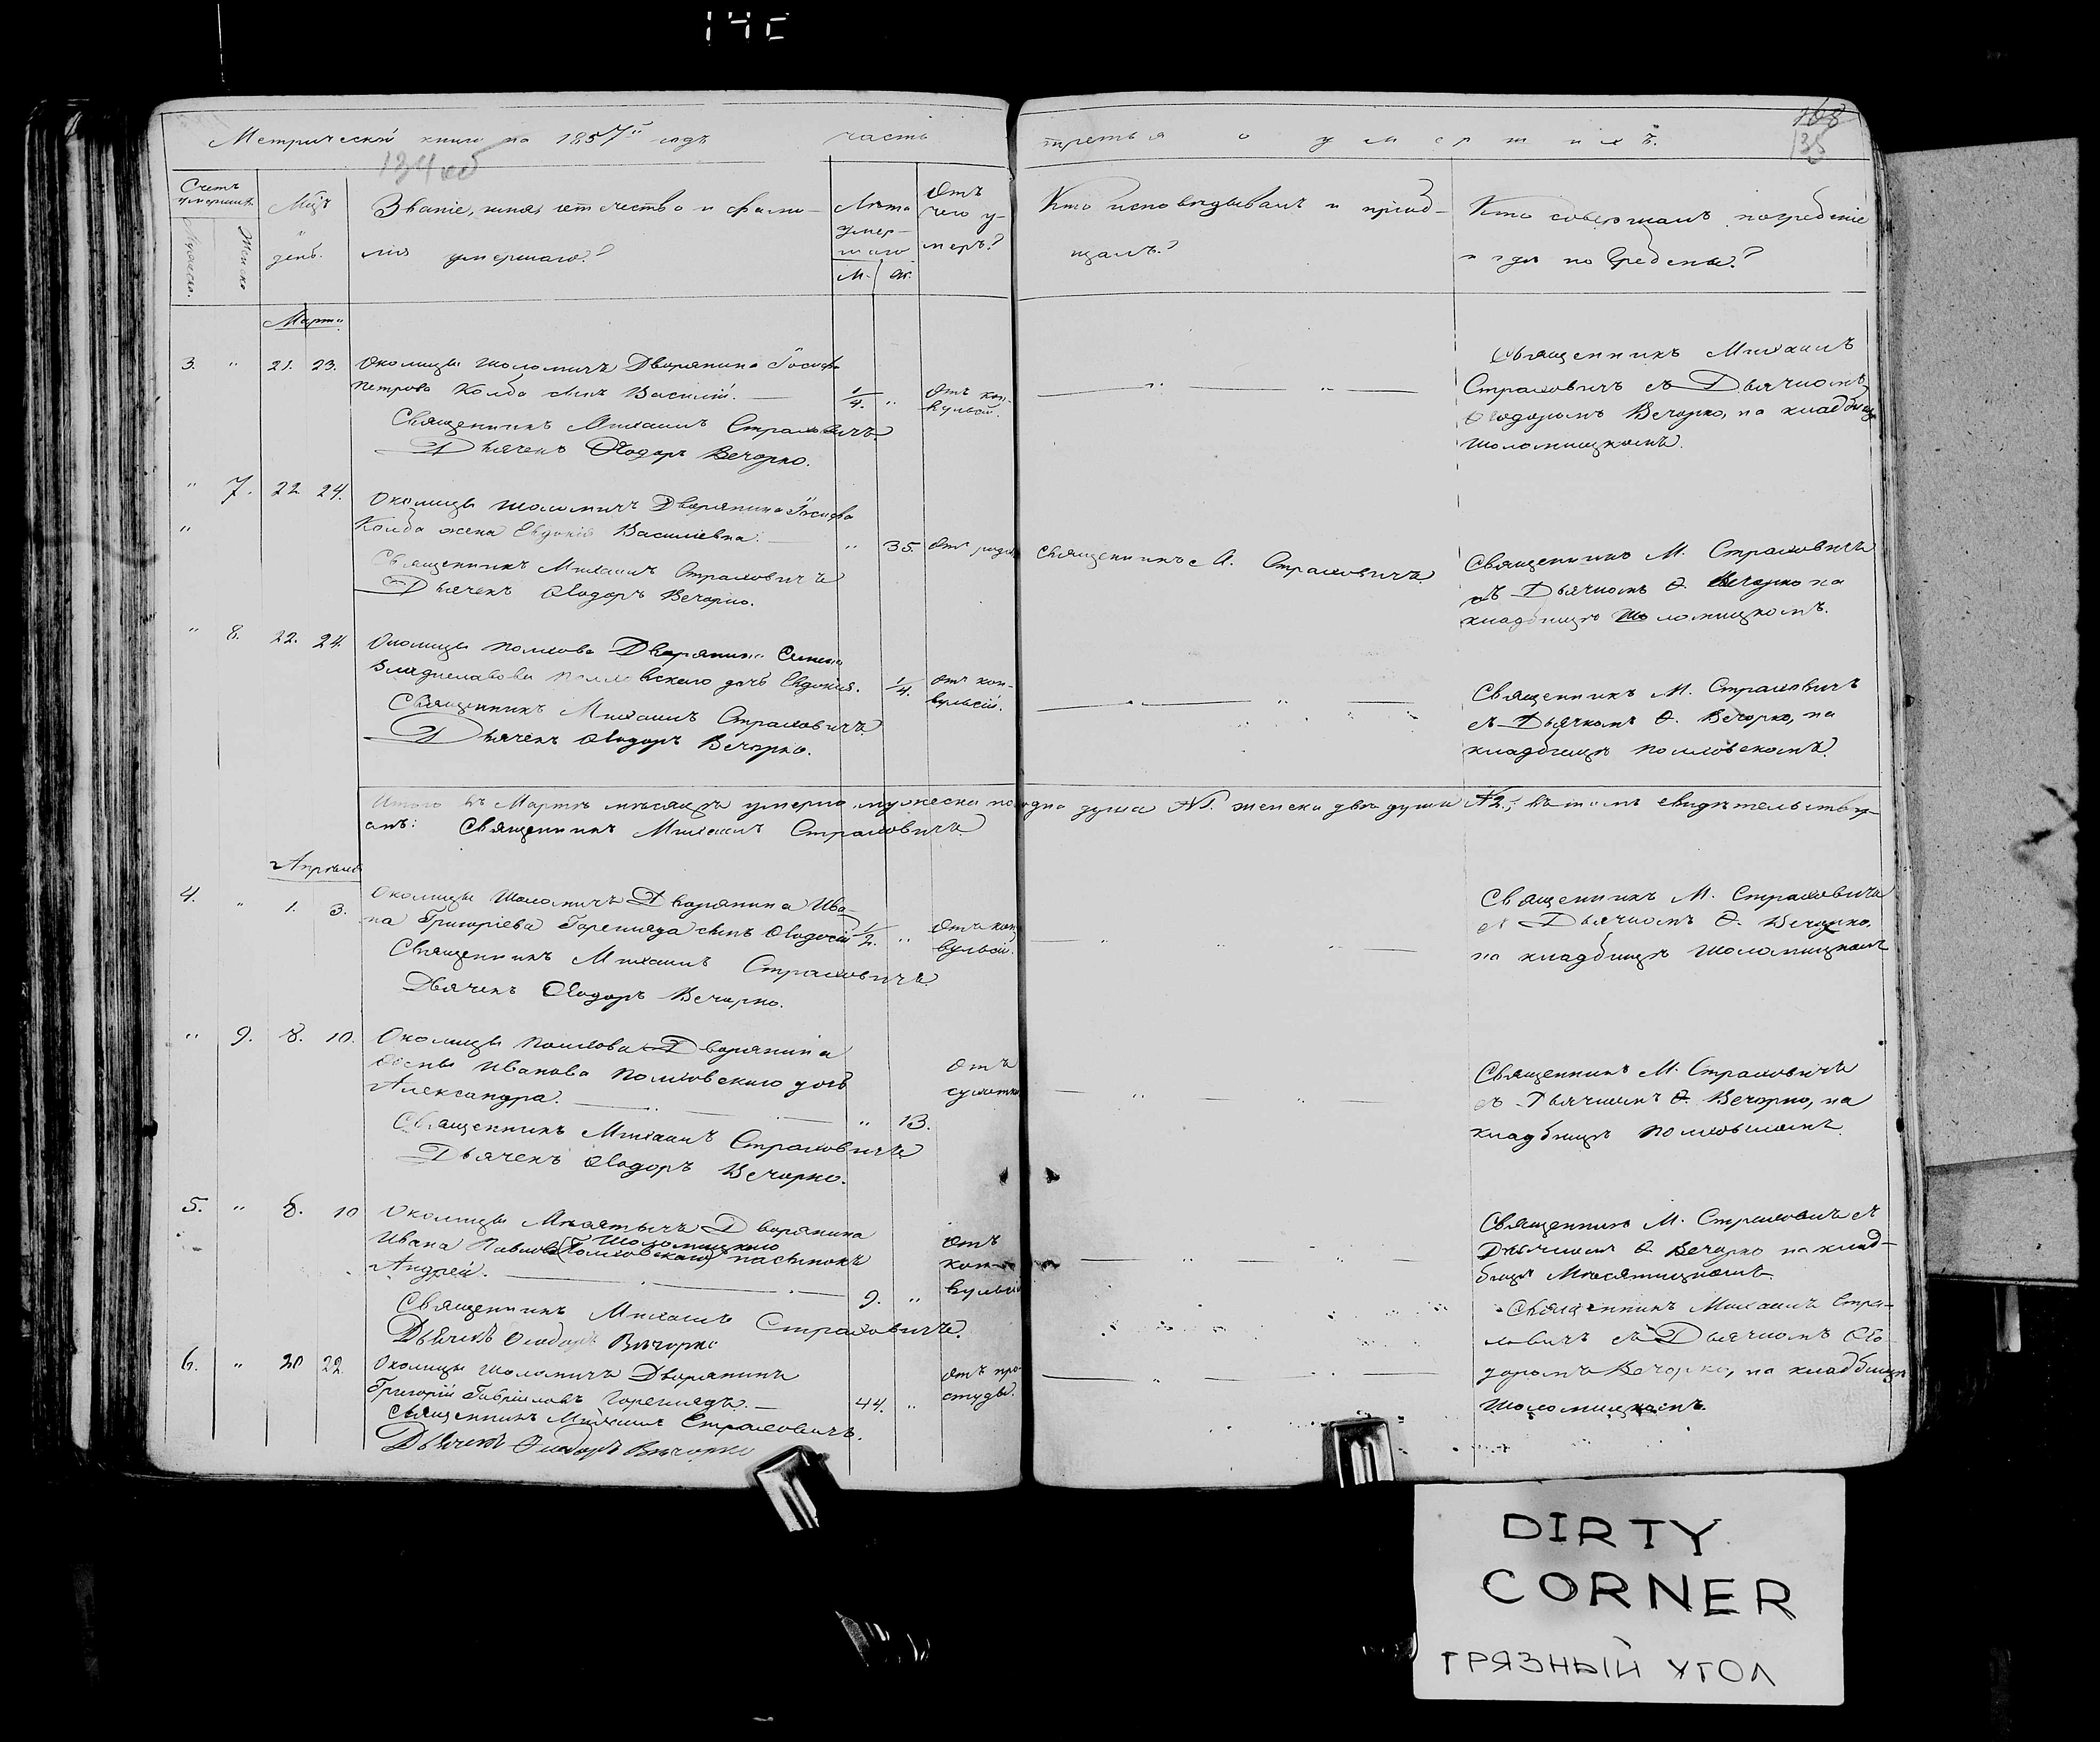 Метрической книги на 1857й годъ часть третья о умершихъ.
134 об
168
135
Счетъ умершихъ
Мужеска.
Женско
Мцъ и день.
Званіе, имя, отчество и фами-
лія умершаго?
Лѣта
умер-
шаго
М. Ж.
Отъ
чего у-
меръ?
Кто исповѣдывалъ и пріоб-
щалъ?
Кто совершалъ погребеніе
и гдѣ погребены?
Марта
3. " 21. 23. Околицы Шоломичъ Дворянина Іосифа
Петрова Колба сынъ Василій. 1/4. " Отъ кон-
вульсій.
Священникъ Михаилъ Страховичъ
Дьячекъ Ѳеодоръ Вечорко.
Священникъ Михаилъ
Страховичъ съ Дьячкомъ
Ѳеодоромъ Вечорко, на кладбищѣ
Шоломицкомъ.
" 7. 22 24. Околицы Шоломичъ Дворянина Іосифа
Колба жена Евдокія Василіевна. " 35. Отъ родовъ
Священникъ Михаилъ Страховичъ
Дьячекъ Ѳеодоръ Вечорко.
Священникъ А. Страховичъ
Священникъ М. Страховичъ
съ Дьячкомъ Ѳ. Вечорко на
кладбищѣ Шоломицкомъ.
" 8. 22. 24. Околицы Полхова Дворянина Семена
Владиславова Полховскаго дочь Евдокія. 1/4. Отъ кон-
вульсій.
Священникъ Михаилъ Страховичъ
Дьячекъ Ѳеодоръ Вечорко.
Священникъ М. Страховичъ
съ Дьячкомъ Ѳ. Вечорко, на
кладбищѣ Полховскомъ.
Итого въ Мартѣ мѣсяцѣ умерло мужеска пола одна душа №1. женска двѣ души №2., въ томъ свидѣтельству-
емъ: Священникъ Михаилъ Страховичъ
Апрѣль
4. " 1. 3. Околицы Шоломичъ Дворянина Ива-
на Григоріева Горегляда сынъ Ѳеодосій 1/2. " Отъ кон-
вульсій.
Священникъ Михаилъ Страховичъ.
Дьячекъ Ѳеодоръ Вечорко.
Священникъ М. Страховичъ
съ Дьячкомъ Ѳ. Вечорко,
на кладбищѣ Шоломицкомъ
" 9. 8. 10. Околицы Полхова Дворянина
Иванова Полховскаго дочь
Александра. " 13. Отъ
сухотки
Священникъ Михаилъ Страховичъ
Дьячекъ Ѳеодоръ Вечорко.
Священникъ М. Страховичъ
съ Дьячкомъ Ѳ. Вечорко, на
кладбищѣ Полховскомъ.
5. " 8. 10 Околицы Мѣсятычъ Дворянина
Шоломицкаго
Ивана Павлова (Полховскаго) пасынокъ
Андрей. 9. " Отъ
кон-
вульсій
Священникъ Михаилъ Страховичъ.
Дьячекъ Ѳеодоръ Вечорко
Священникъ М. Страховичъ съ
Дьячкомъ Ѳ. Вечорко на клад-
бищѣ Мѣсятицкомъ.
6. " 20 22 Околицы Шоломичъ Дворянинъ
Григорій Гавріиловъ Гореглядъ. 44. " Отъ про-
студы.
Священникъ Михаилъ Страховичъ.
Дьячекъ Ѳеодоръ Вечорко
Священникъ Михаилъ Стра-
ховичъ съ Дьячкомъ Ѳео-
доромъ Вечорко, на кладбищѣ
Шоломицкомъ.
DIRTY
CORNER
ГРЯЗНЫЙ УГОЛ